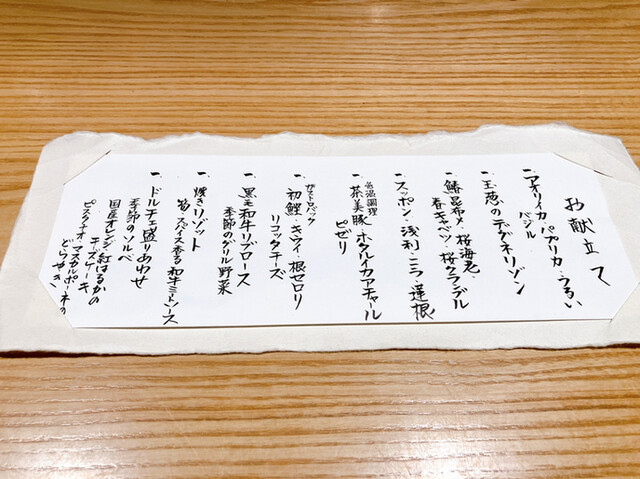 お献立て
一、アオリイカ・パプリカ・うるい
バジル
一、玉葱のテグネリゾン
一、鰆昆布〆・桜海老
春キャベツ・桜クランデル
一、スッポン・浅利・ニラ・蓮根
一、低温調理
茶美豚・ホタルイカアチャール
ピゼリ
一、ガストロバック
初鰹・キウイ・根セロリ
リコッタチーズ
一、黒毛和牛リブロース
季節のグリル野菜
一、焼きリゾット
スパイス香る和牛ミートソース
一、ドルチェ盛りあわせ
季節のソルベ
国産オレンジ・紅はるかの
チーズケーキ
ピスタチオ・マスカルポーネの
どらやき